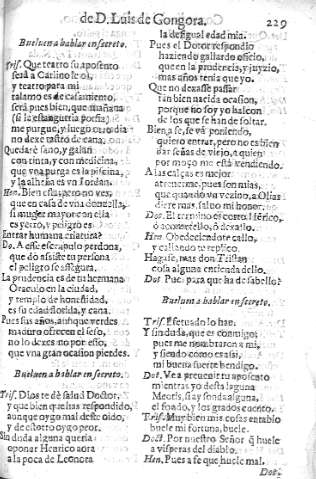 de D. Luis de Gongora.
229
Bueluen a hablar en secreto.
Tris. Que teatro su aposento
será a Carlino le oi,
y teatro para mi
talamo es de casamiento,
será pues bien, que mañana
(si la estangurria porfia)
me purgue, y luego otro dia
no dexe rastro de cana.
Quedarè sano, y galan
con tinta, y con medicina,
que vna purga es la piscina,
y la alheña es vn Iordan.
Hen. Bien està, pero no ves,
que en casa de vna donzella,
si muger mayor con ella
es yerro, y peligro es
Entrar humana criatura?
Do. A esse escrupulo perdona,
que dò assiste tu persona
el peligro se assegura.
La prudencia es de tu hermana
Oraculo en la ciudad,
y templo de honestidad,
es su edad florida, y cana.
Pues sus años, aunque verdes
maduro ofrecen el seso,
no lo dexes no por esso,
que vna gran ocasion pierdes.
Bueluen a hablar en secreto.
Tris. Dios te dè salud Doctor,
y que bien que has respondido,
aunque oygo mal deste oido,
y de estotro oygo peor.
Sin duda alguna queria
oponer Henrico aora
a la poca de Leonora
la desigual edad mia.
Pues el Dotor respondio
haziendo gallardo oficio,
que en la prudencia, y juyzio,
mas años tenia que yo.
Que no dexasse passar
tan bien nacida ocasion,
porque no soy yo halcon
de los que se han de soltar.
Bien a fe, se va poniendo,
quiero entrar, pero no es bien
dar señas de viejo, a quien
por moço me està vendiendo.
A las calças es mejor
atenerme, pues son mias,
que quando vn vezino, a Dias
diere mas, saluo mi honor.
Dot. El termino es corto Hérico,
ò aconsejello, ò dexallo.
Hen. Obedeciendote callo,
y callando te replico.
Hagase, mas don Tristan
cosa alguna entienda dello.
Dot. Pues para que ha de sabello?
Bueluen a hablar en secreto.
Tris. Efetuado lo han.
Y sin duda, que es conmigo,
pues me nombraron a mi,
y siendo como es assi,
mi buena suerte bendigo.
Dot. Ve a preuenir tu aposento
mientras yo desta laguna
Meotis, si ay sonda alguna,
el fondo, y los grados cuento.
Tris. Muy bien mis cosas entablo
huele mi fortuna, huele.
Doct. Por nuestro Señor q̃ huele
a visperas del diablo.
Hen. Pues a fe que huele mal.
Dot.